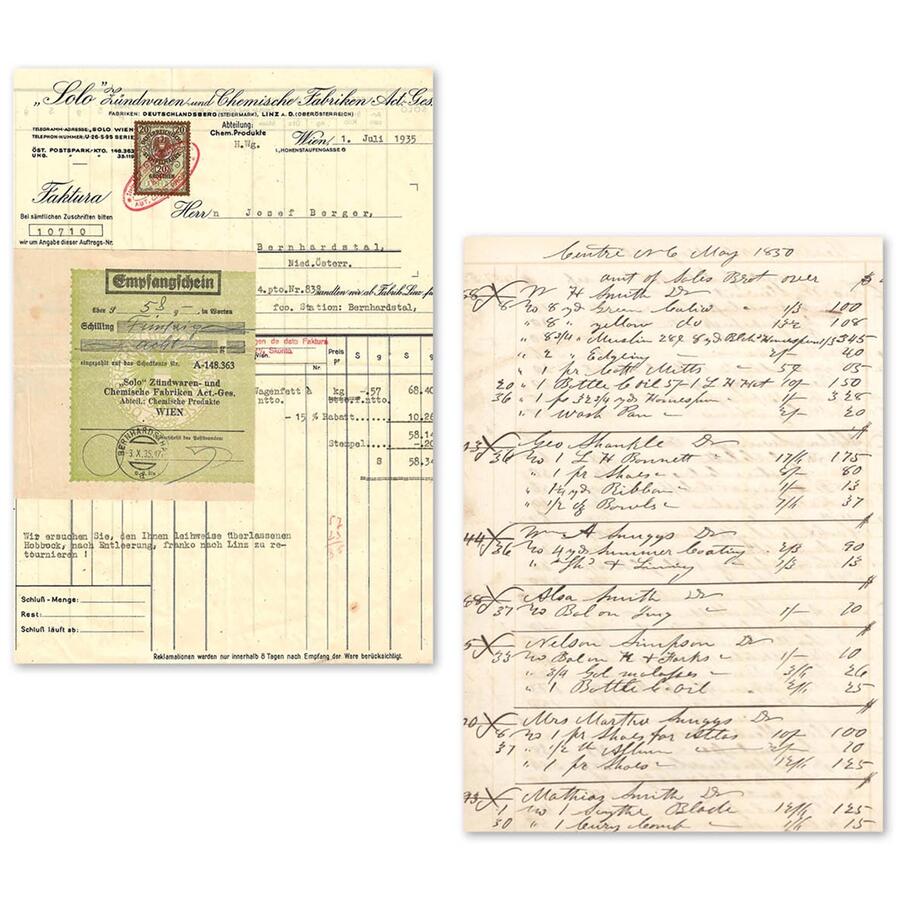 „Solo" Zündwaren und Chemische Fabriken Act.-Ges.
FABRIKEN: DEUTSCHLANDSBERG (STEIERMARK), LINZ A. D. (OBERÖSTERREICH)
TELEGRAMM-ADRESSE „SOLO WIEN
TELEPHON-NUMMER: U-26-5-95 SERIE
ÖST. POSTSPARK.-KTO. 148.363
UNG. " " 35.119
20 20
20
GROSCHEN
Abteilung:
Chem. Produkte
H.Wg.
Wien, 1. Juli 1935
I., HOHENSTAUFENGASSE 6
Faktura
Bei sämtlichen Zuschriften bitten
10710
wir um Angabe dieser Auftrags-Nr.
Herrn Josef Berger,
Bernhardstal,
Nied.Österr.
4.pto.Nr.839 sandten wir ab Fabrik Linz
fco. Station: Bernhardstal,
Empfangschein
über S 58 g — in Worten
Schilling Fünfzig
acht g
eingezahlt auf das Scheckkonto Nr. A-148.363
„Solo" Zündwaren- und
Chemische Fabriken Act.-Ges.
Abteil.: Chemische Produkte
WIEN
Unterschrift des Postbeamten:
BERNHARDS
-3.X.35.17
gen de dato Faktura
Skonto.
Preis
pro
Nr
S g S g
Wagenfett à kg -.57 68.40
ntto. ntto
- 15 % Rabatt 10.26
58.14
Stempel -.20
S 58.34
Wir ersuchen Sie, den Ihnen leihweise überlassenen
Hobbock, nach Entleerung, franko nach Linz zu re-
tournieren !
Schluß - Menge:
Rest:
Schluß läuft ab:
Reklamationen werden nur innerhalb 8 Tagen nach Empfang der Ware berücksichtigt.
Centre N C May 1850
amt of Sales Brot over $
W H Smith Dr
8 To 8 yd Green Calico 1/3 100
" 8 " yellow do 13½ 108
" 8 3/4 " Muslin 28¢ 8 yd Homespun 1/3 345
" 2 " Edging 2/- 40
" 1 pr Cott Mitts 5¢ 05
20 " 1 Bottle C oil 5/- 1 L H Hat 10/- 150
36 " 1 ps 32 3/4 yds Homespun 1/- 328
" 1 Wash Pan 2/- 20
Geo Shankle Dr
36 To 1 L H Bonnett 17/6 175
" 1 pr Shoes 8/- 80
" 1¼ yds Ribbon 1/- 13
" 1/2 Bowls 7/6 37
44 Wm A Suggs Dr
36 To 4 yd Summer Coating 2/3 90
" Lining 1/3 13
Smith Dr
37 To Bal on Jug 1/- 10
Nelson Simpson Dr
33 To Bal on K & Forks 1/- 10
" 3/4 Gal molasses 3/6 26
" 1 Bottle C oil 2/6 25
Mrs Martha Suggs Dr
6 To 1 pr Shoes for 10/- 100
37 " 1/2 lb Allum 2/- 10
" 1 pr Shoes 12/6 125
Mathias Smith Dr
1 To 1 Scythe Blade 12/6 125
30 " 1 Curry Comb 1/6 15